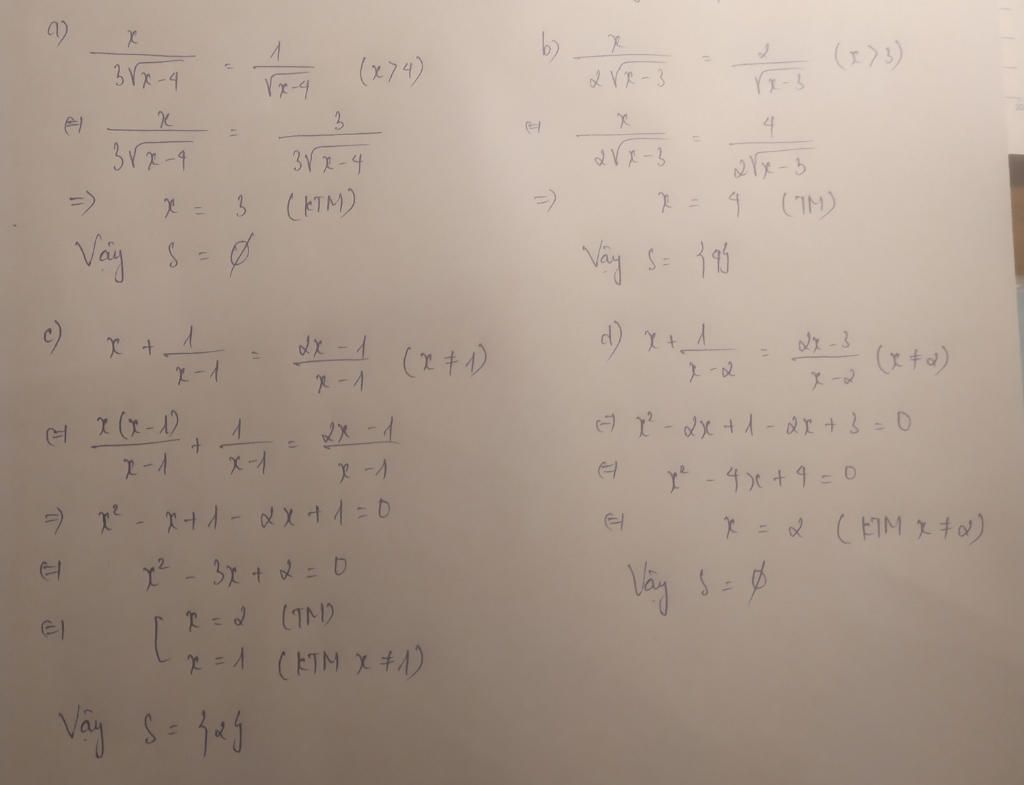 a) x/(3√(x-4)) = 1/√(x-4) (x>4)
⇔ x/(3√(x-4)) = 3/(3√(x-4))
=> x = 3 (KTM)
Vậy S = ∅
b) x/(2√(x-3)) = 2/√(x-3) (x>3)
⇔ x/(2√(x-3)) = 4/(2√(x-3))
=> x = 4 (TM)
Vậy S = {4}
c) x + 1/(x-1) = (2x-1)/(x-1) (x≠1)
⇔ x(x-1)/(x-1) + 1/(x-1) = (2x-1)/(x-1)
=> x² - x+1 - 2x+1 = 0
⇔ x² - 3x + 2 = 0
⇔ [ x = 2 (TM)
x = 1 (KTM x≠1)
Vậy S = {2}
d) x + 1/(x-2) = (2x-3)/(x-2) (x≠2)
=> x² - 2x+1 - 2x+3 = 0
⇔ x² - 4x + 4 = 0
⇔ x = 2 (KTM x≠2)
Vậy S = ∅